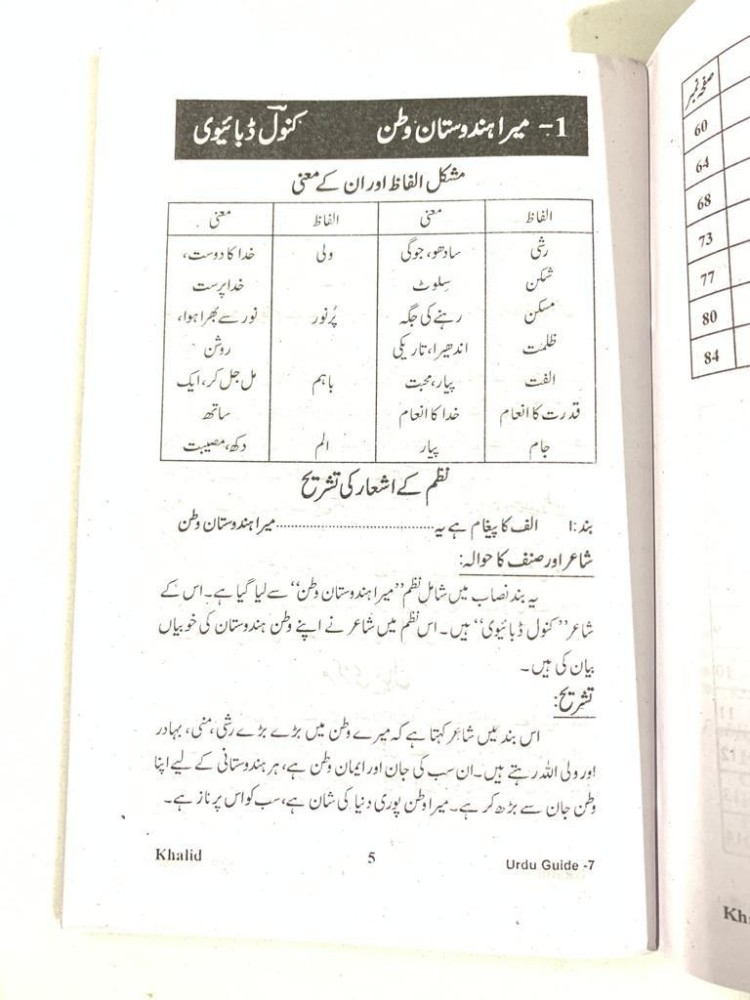 1- میرا ہندوستان وطن کنولؔ ڈبائیوی
مشکل الفاظ اور ان کے معنی
الفاظ معنی الفاظ معنی
رشی سادھو، جوگی ولی خدا کا دوست،
شکن سِلوٹ خدا پرست
مسکن رہنے کی جگہ پُرنور نور سے بھرا ہوا،
ظلمت اندھیرا، تاریکی روشن
الفت پیار، محبت باہم مل جل کر، ایک
قدرت کا انعام خدا کا انعام ساتھ
جام پیار الم دکھ، مصیبت
نظم کے اشعار کی تشریح
بند:۱ الف کا پیغام ہے یہ..............................میرا ہندوستان وطن
شاعر اور صنف کا حوالہ:
یہ بند نصاب میں شامل نظم ”میرا ہندوستان وطن“ سے لیا گیا ہے۔ اس کے
شاعر ”کنول ڈبائیوی“ ہیں۔ اس نظم میں شاعر نے اپنے وطن ہندوستان کی خوبیاں
بیان کی ہیں۔
تشریح:
اس بند میں شاعر کہتا ہے کہ میرے وطن میں بڑے بڑے رشی، منی، بہادر
اور ولی اللہ رہتے ہیں۔ ان سب کی جان اور ایمان وطن ہے، ہر ہندوستانی کے لیے اپنا
وطن جان سے بڑھ کر ہے۔ میرا وطن پوری دنیا کی شان ہے، سب کو اس پر ناز ہے۔
Khalid 5 Urdu Guide -7
صفحہ نمبر
60
64
68
73
77
80
84
Kh